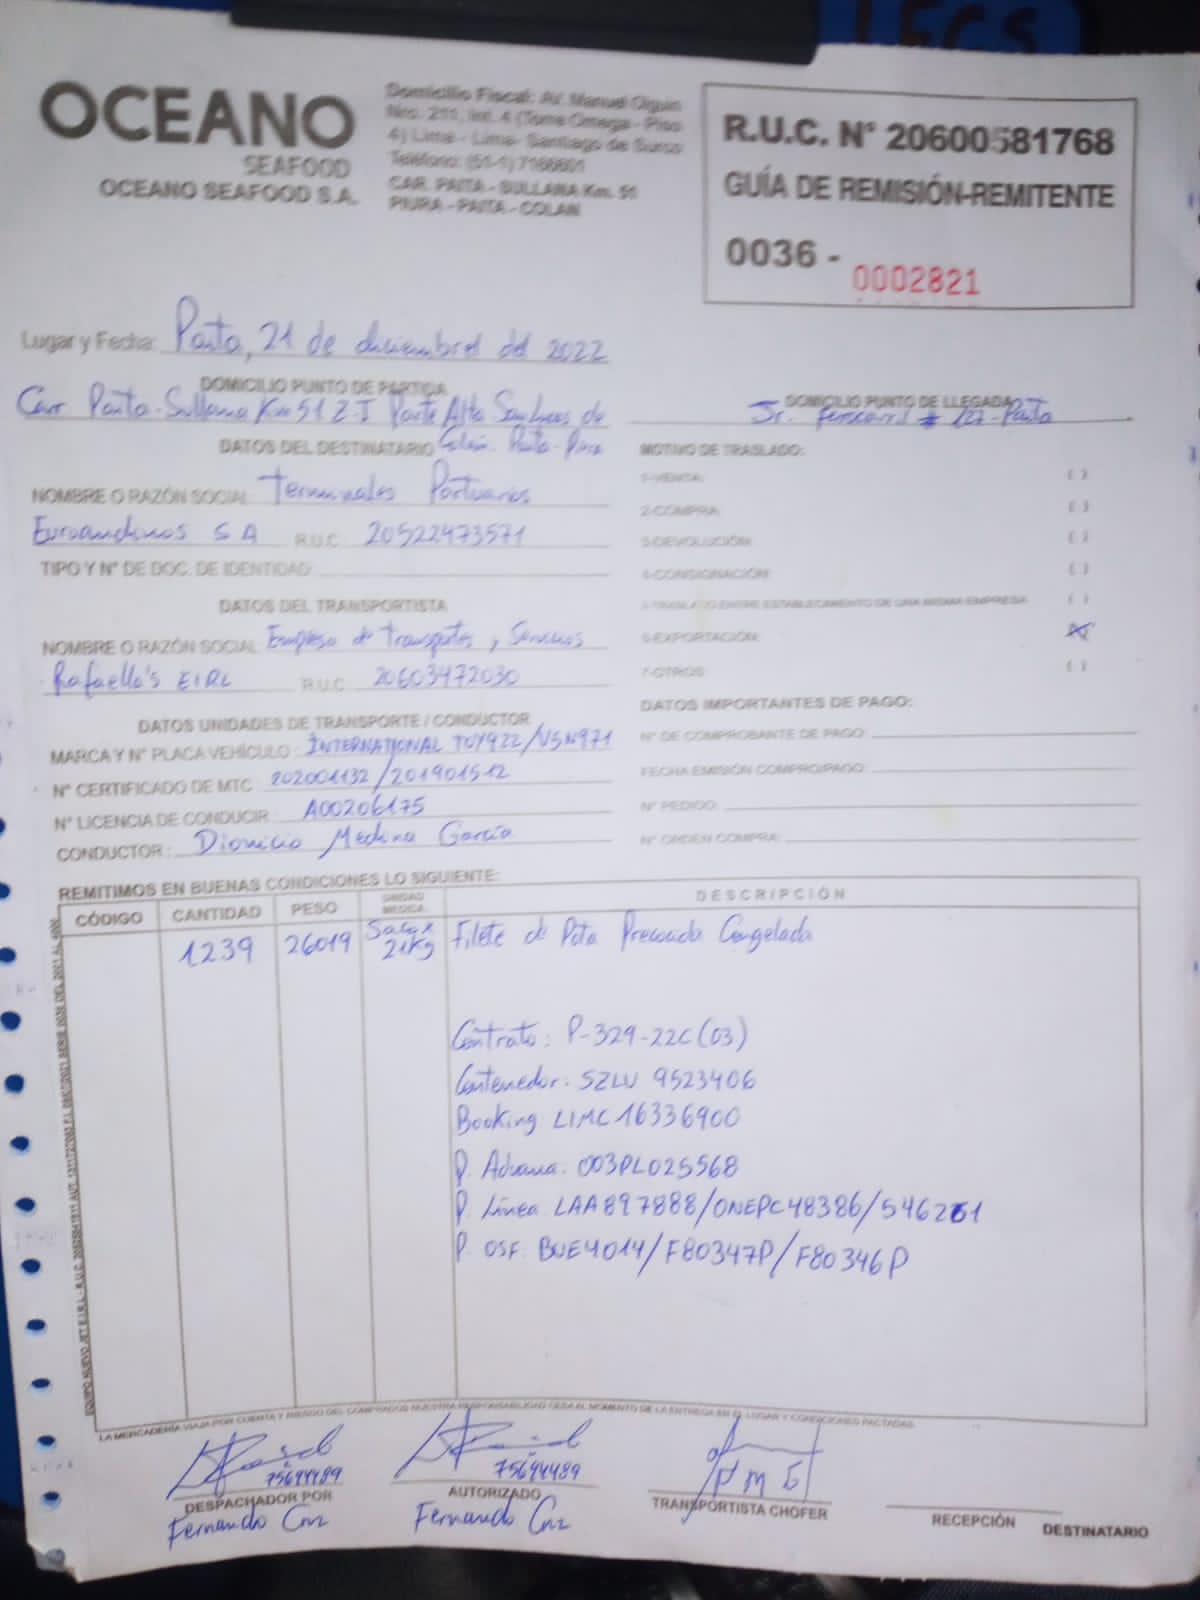 OCEANO
SEAFOOD
OCEANO SEAFOOD S.A.
Domicilio Fiscal: Av. Manuel Olguin
Nro. 211, Int. 4 (Torre Omega - Piso
4) Lima - Lima- Santiago de Surco
Teléfono: (51-1) 7166601
CAR. PAITA - SULLANA Km. 51
PIURA - PAITA - COLAN
R.U.C. N° 20600581768
GUÍA DE REMISIÓN-REMITENTE
0036 - 0002821
Lugar y Fecha: Paita, 21 de diciembre del 2022
DOMICILIO PUNTO DE PARTIDA
Carr Paita-Sullana Km 51 Z-I Parte Alta San Lucas de
Colán. Paita-Piura
DOMICILIO PUNTO DE LLEGADA
Jr. Ferrocarril # 127-Paita
DATOS DEL DESTINATARIO
NOMBRE O RAZÓN SOCIAL Terminales Portuarios
Euroandinos S A R.U.C. 20522473571
TIPO Y N° DE DOC. DE IDENTIDAD:
DATOS DEL TRANSPORTISTA
NOMBRE O RAZÓN SOCIAL Empresa de Transportes y Servicios
Rafaello's EIRL R.U.C. 20603472030
DATOS UNIDADES DE TRANSPORTE / CONDUCTOR
MARCA Y N° PLACA VEHÍCULO : INTERNATIONAL TOY922/VSN971
N° CERTIFICADO DE MTC : 202001132/201901512
N° LICENCIA DE CONDUCIR : A00206175
CONDUCTOR : Dionicio Medina García
MOTIVO DE TRASLADO:
1-VENTA: ( )
2-COMPRA: ( )
3-DEVOLUCIÓN: ( )
4-CONSIGNACIÓN: ( )
5-TRASLADO ENTRE ESTABLECIMIENTO DE UNA MISMA EMPRESA ( )
6-EXPORTACIÓN: (X)
7-OTROS: ( )
DATOS IMPORTANTES DE PAGO:
N° DE COMPROBANTE DE PAGO:
FECHA EMISIÓN COMPRO/PAGO:
N° PEDIDO:
N° ORDEN COMPRA:
REMITIMOS EN BUENAS CONDICIONES LO SIGUIENTE:
CÓDIGO CANTIDAD PESO UNIDAD MEDICA DESCRIPCIÓN
1239 26019 Saco x 21Kg Filete de Pota Precocida Congelada
Contrato: P-329-22C(03)
Contenedor: SZLU 9523406
Booking LIMC16336900
P. Aduana: 003PL025568
P. Línea LAA897888/ONEPC48386/546261
P. OSF. BUE4014/F80347P/F80346P
LA MERCADERÍA VIAJA POR CUENTA Y RIESGO DEL COMPRADOR NUESTRA RESPONSABILIDAD CESA AL MOMENTO DE LA ENTREGA EN EL LUGAR Y CONDICIONES PACTADAS
75694489
DESPACHADOR POR
Fernando Cruz
75694489
AUTORIZADO
Fernando Cruz
DMG
TRANSPORTISTA CHOFER
RECEPCIÓN DESTINATARIO